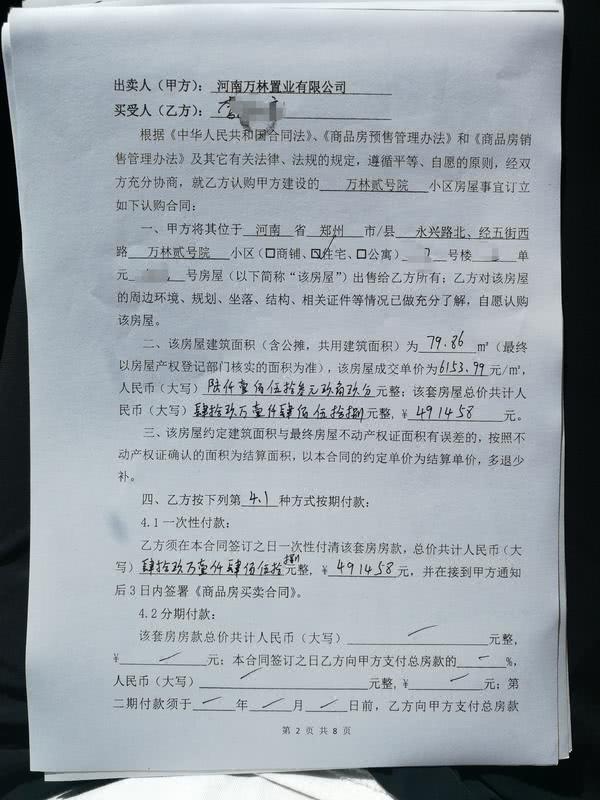 出卖人（甲方）：河南万林置业有限公司
买受人（乙方）：
根据《中华人民共和国合同法》、《商品房预售管理办法》和《商品房销
售管理办法》及其它有关法律、法规的规定，遵循平等、自愿的原则，经双
方充分协商，就乙方认购甲方建设的 万林贰号院 小区房屋事宜订立
如下认购合同：
一、甲方将其位于 河南 省 郑州 市/县 永兴路北、经五街西
路 万林贰号院 小区（□商铺、☑住宅、□公寓） 号楼 单
元 号房屋（以下简称“该房屋”）出售给乙方所有；乙方对该房屋
的周边环境、规划、坐落、结构、相关证件等情况已做充分了解，自愿认购
该房屋。
二、该房屋建筑面积（含公摊，共用建筑面积）为 79.86 ㎡（最终
以房屋产权登记部门核实的面积为准），该房屋成交单价为6153.99元/㎡，
人民币（大写）陆仟壹佰伍拾叁元玖角玖分元整；该套房屋总价共计人
民币（大写）肆拾玖万壹仟肆佰伍拾捌元整，¥ 491458 元。
三、该房屋约定建筑面积与最终房屋不动产权证面积有误差的，按照不
动产权证确认的面积为结算面积，以本合同的约定单价为结算单价，多退少
补。
四、乙方按下列第 4.1 种方式按期付款：
4.1 一次性付款：
乙方须在本合同签订之日一次性付清该套房房款，总价共计人民币（大
写）肆拾玖万壹仟肆佰伍拾捌元整，¥ 491458 元，并在接到甲方通知
后 3 日内签署《商品房买卖合同》。
4.2 分期付款：
该套房房款总价共计人民币（大写） 元整，
¥ 元；本合同签订之日乙方向甲方支付总房款的 %，
人民币（大写） 元整，¥ 元；第
二期付款须于 年 月 日前，乙方向甲方支付总房款
第 2 页 共 8 页